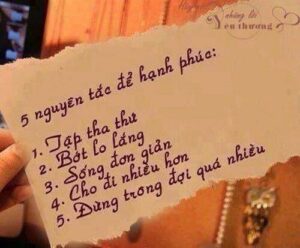 những lời
Yêu thương
5 nguyên tắc để hạnh phúc:
1. Tập tha thứ
2. Bớt lo lắng
3. Sống đơn giản
4. Cho đi nhiều hơn
5. Đừng trông đợi quá nhiều